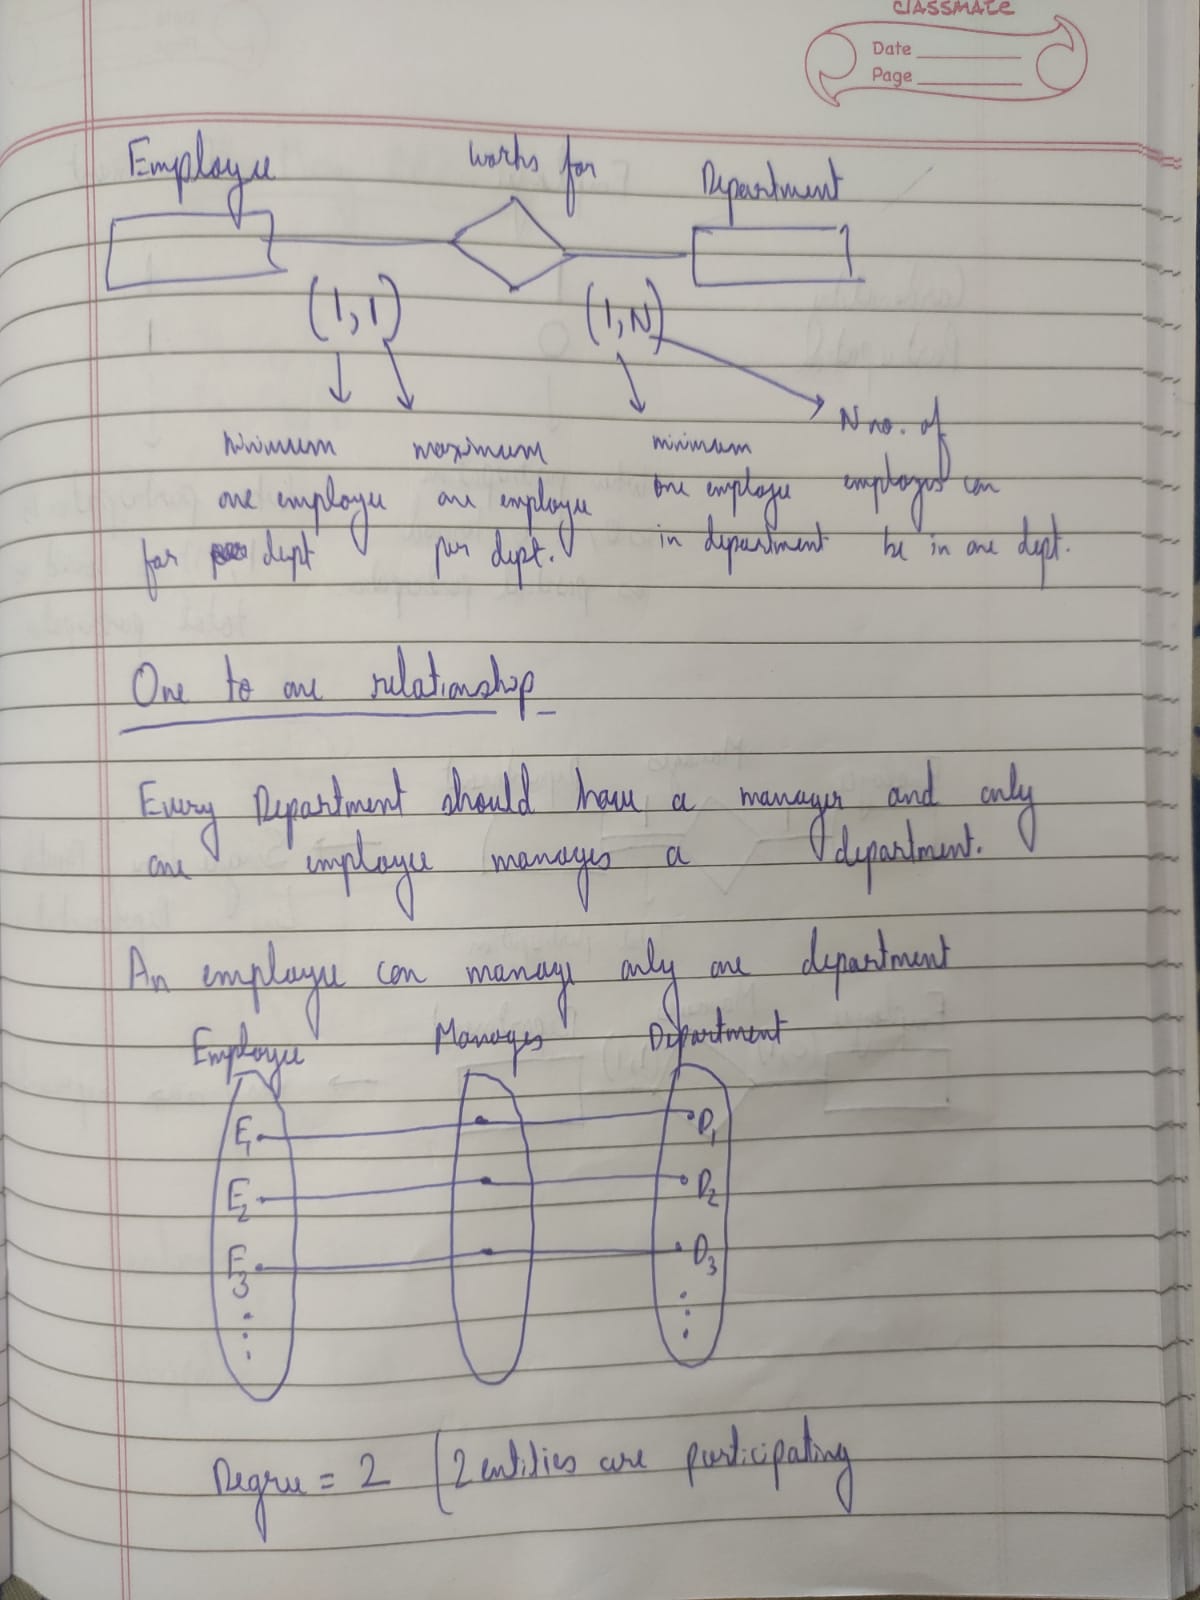 classmate
Date
Page
Employee works for Department
(1,1) (1,N)
minimum maximum minimum N no. of
one employee one employee one employee employes can
for dept per dept. in department be in one dept.
One to one relationship
Every Department should have a manager and only
one employee manages a department.
An employee can manage only one department
Employee Manages Department
E1 D1
E2 D2
E3 D3
Degree = 2 (2 entities are participating